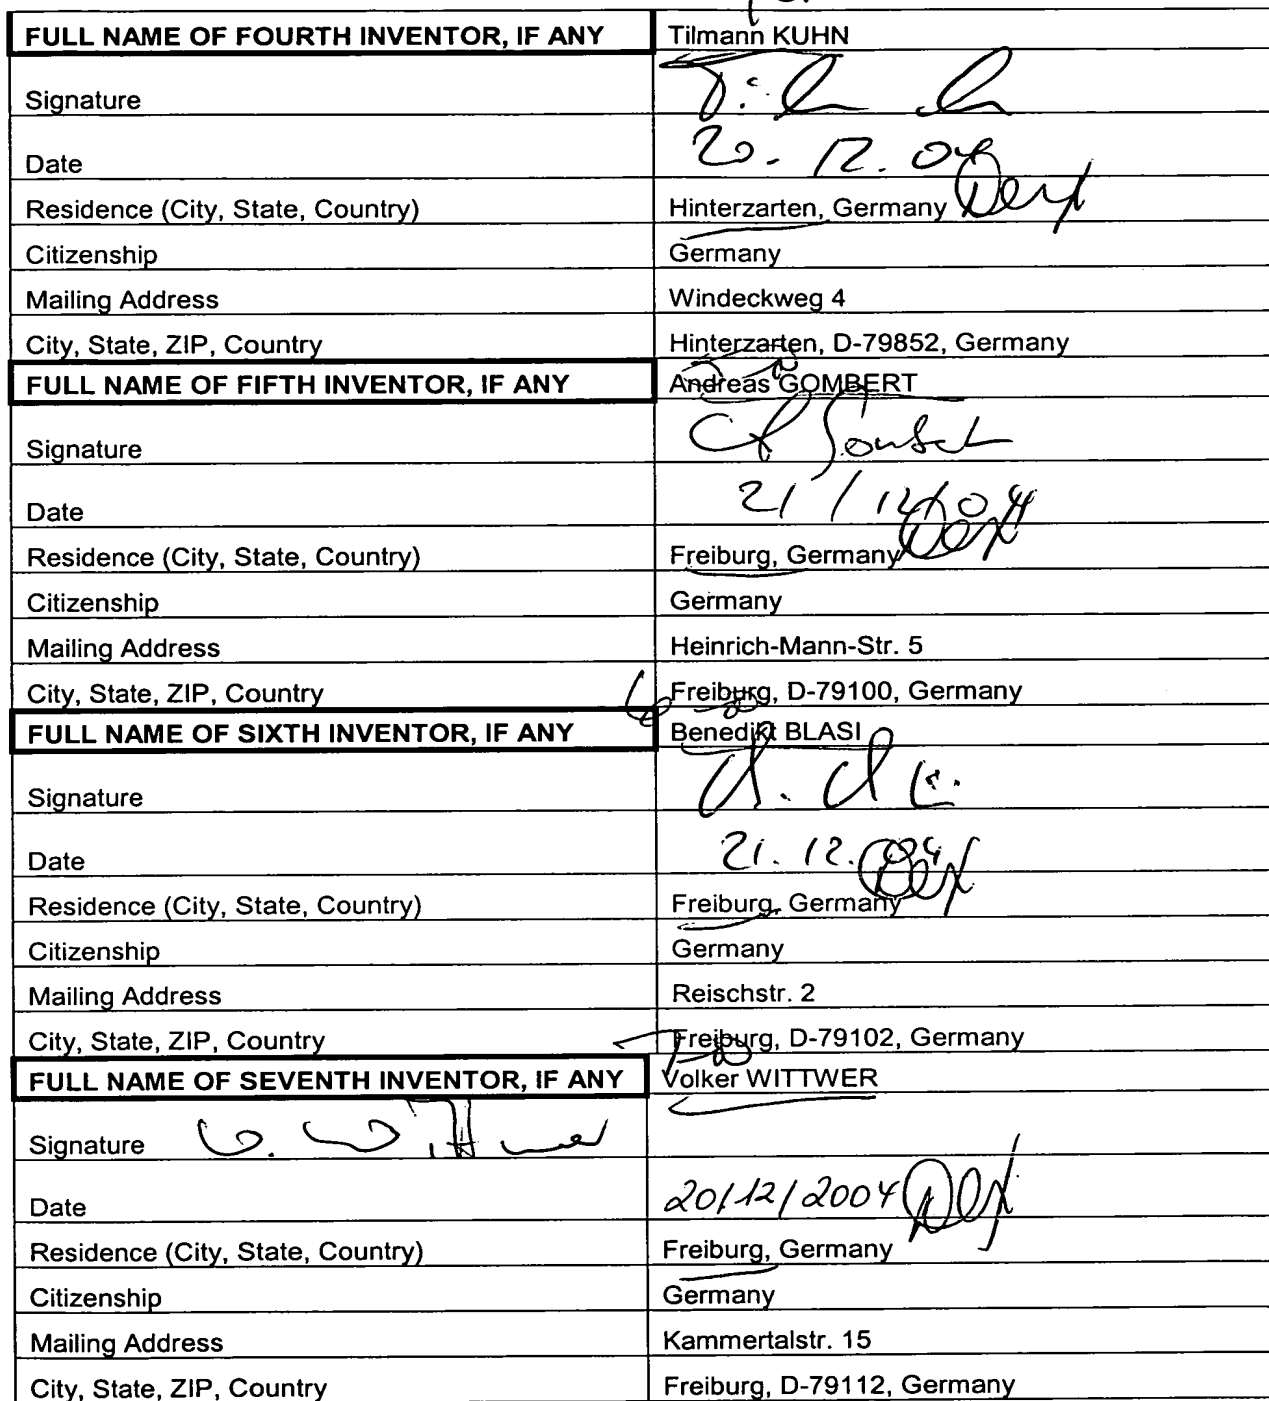 FULL NAME OF FOURTH INVENTOR, IF ANY Tilmann KUHN
Signature
Date 20. 12. 04 DEX
Residence (City, State, Country) Hinterzarten, Germany
Citizenship Germany
Mailing Address Windeckweg 4
City, State, ZIP, Country Hinterzarten, D-79852, Germany
FULL NAME OF FIFTH INVENTOR, IF ANY Andreas GOMBERT
Signature
Date 21/12/04 DEX
Residence (City, State, Country) Freiburg, Germany
Citizenship Germany
Mailing Address Heinrich-Mann-Str. 5
City, State, ZIP, Country Freiburg, D-79100, Germany
FULL NAME OF SIXTH INVENTOR, IF ANY Benedikt BLASI
Signature
Date 21. 12. 04 DEX
Residence (City, State, Country) Freiburg, Germany
Citizenship Germany
Mailing Address Reischstr. 2
City, State, ZIP, Country Freiburg, D-79102, Germany
FULL NAME OF SEVENTH INVENTOR, IF ANY Volker WITTWER
Signature V. Wittwer
Date 20/12/2004 DEX
Residence (City, State, Country) Freiburg, Germany
Citizenship Germany
Mailing Address Kammertalstr. 15
City, State, ZIP, Country Freiburg, D-79112, Germany